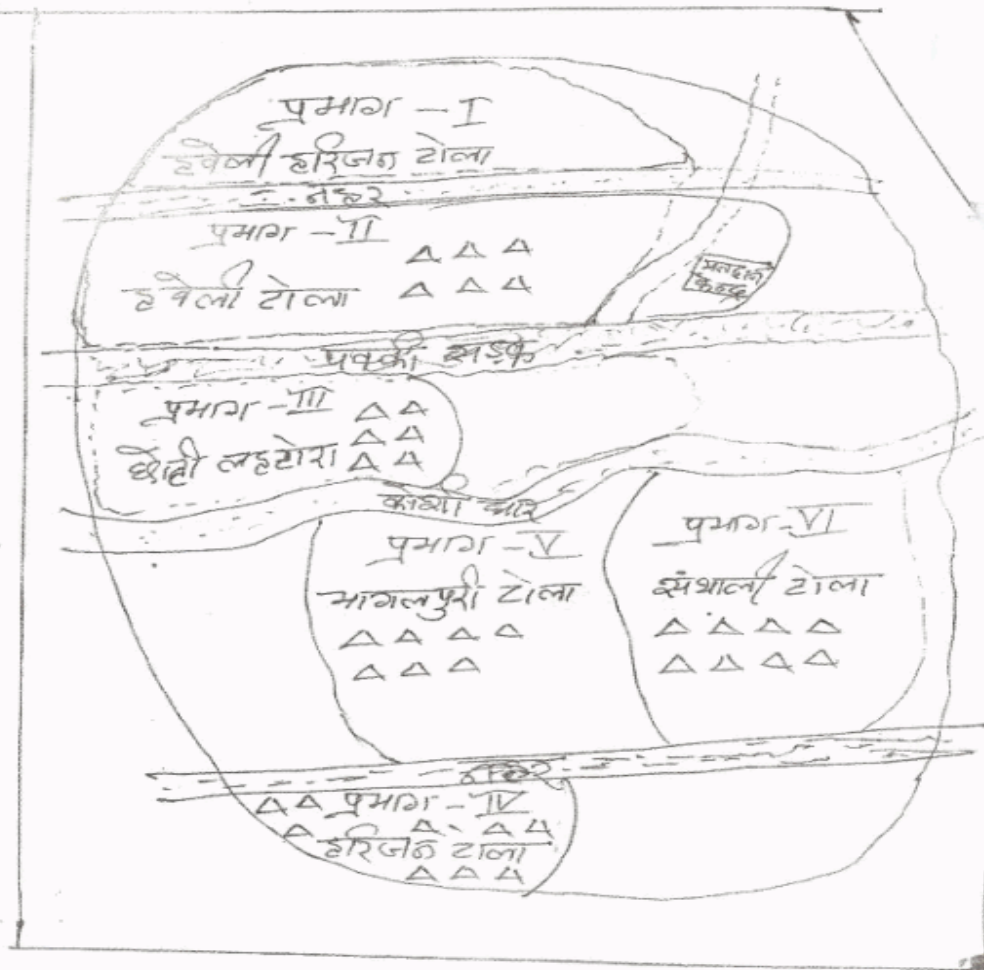 प्रभाग - I
हवेली हरिजन टोला
नहर
प्रभाग - II
हवेली टोला
मतदान
केन्द्र
पक्की सड़क
प्रभाग - III
छोटी लहटोरा
कोशी धार
प्रभाग - V
भागलपुरी टोला
प्रभाग - VI
संथाली टोला
नहर
प्रभाग - IV
हरिजन टोला